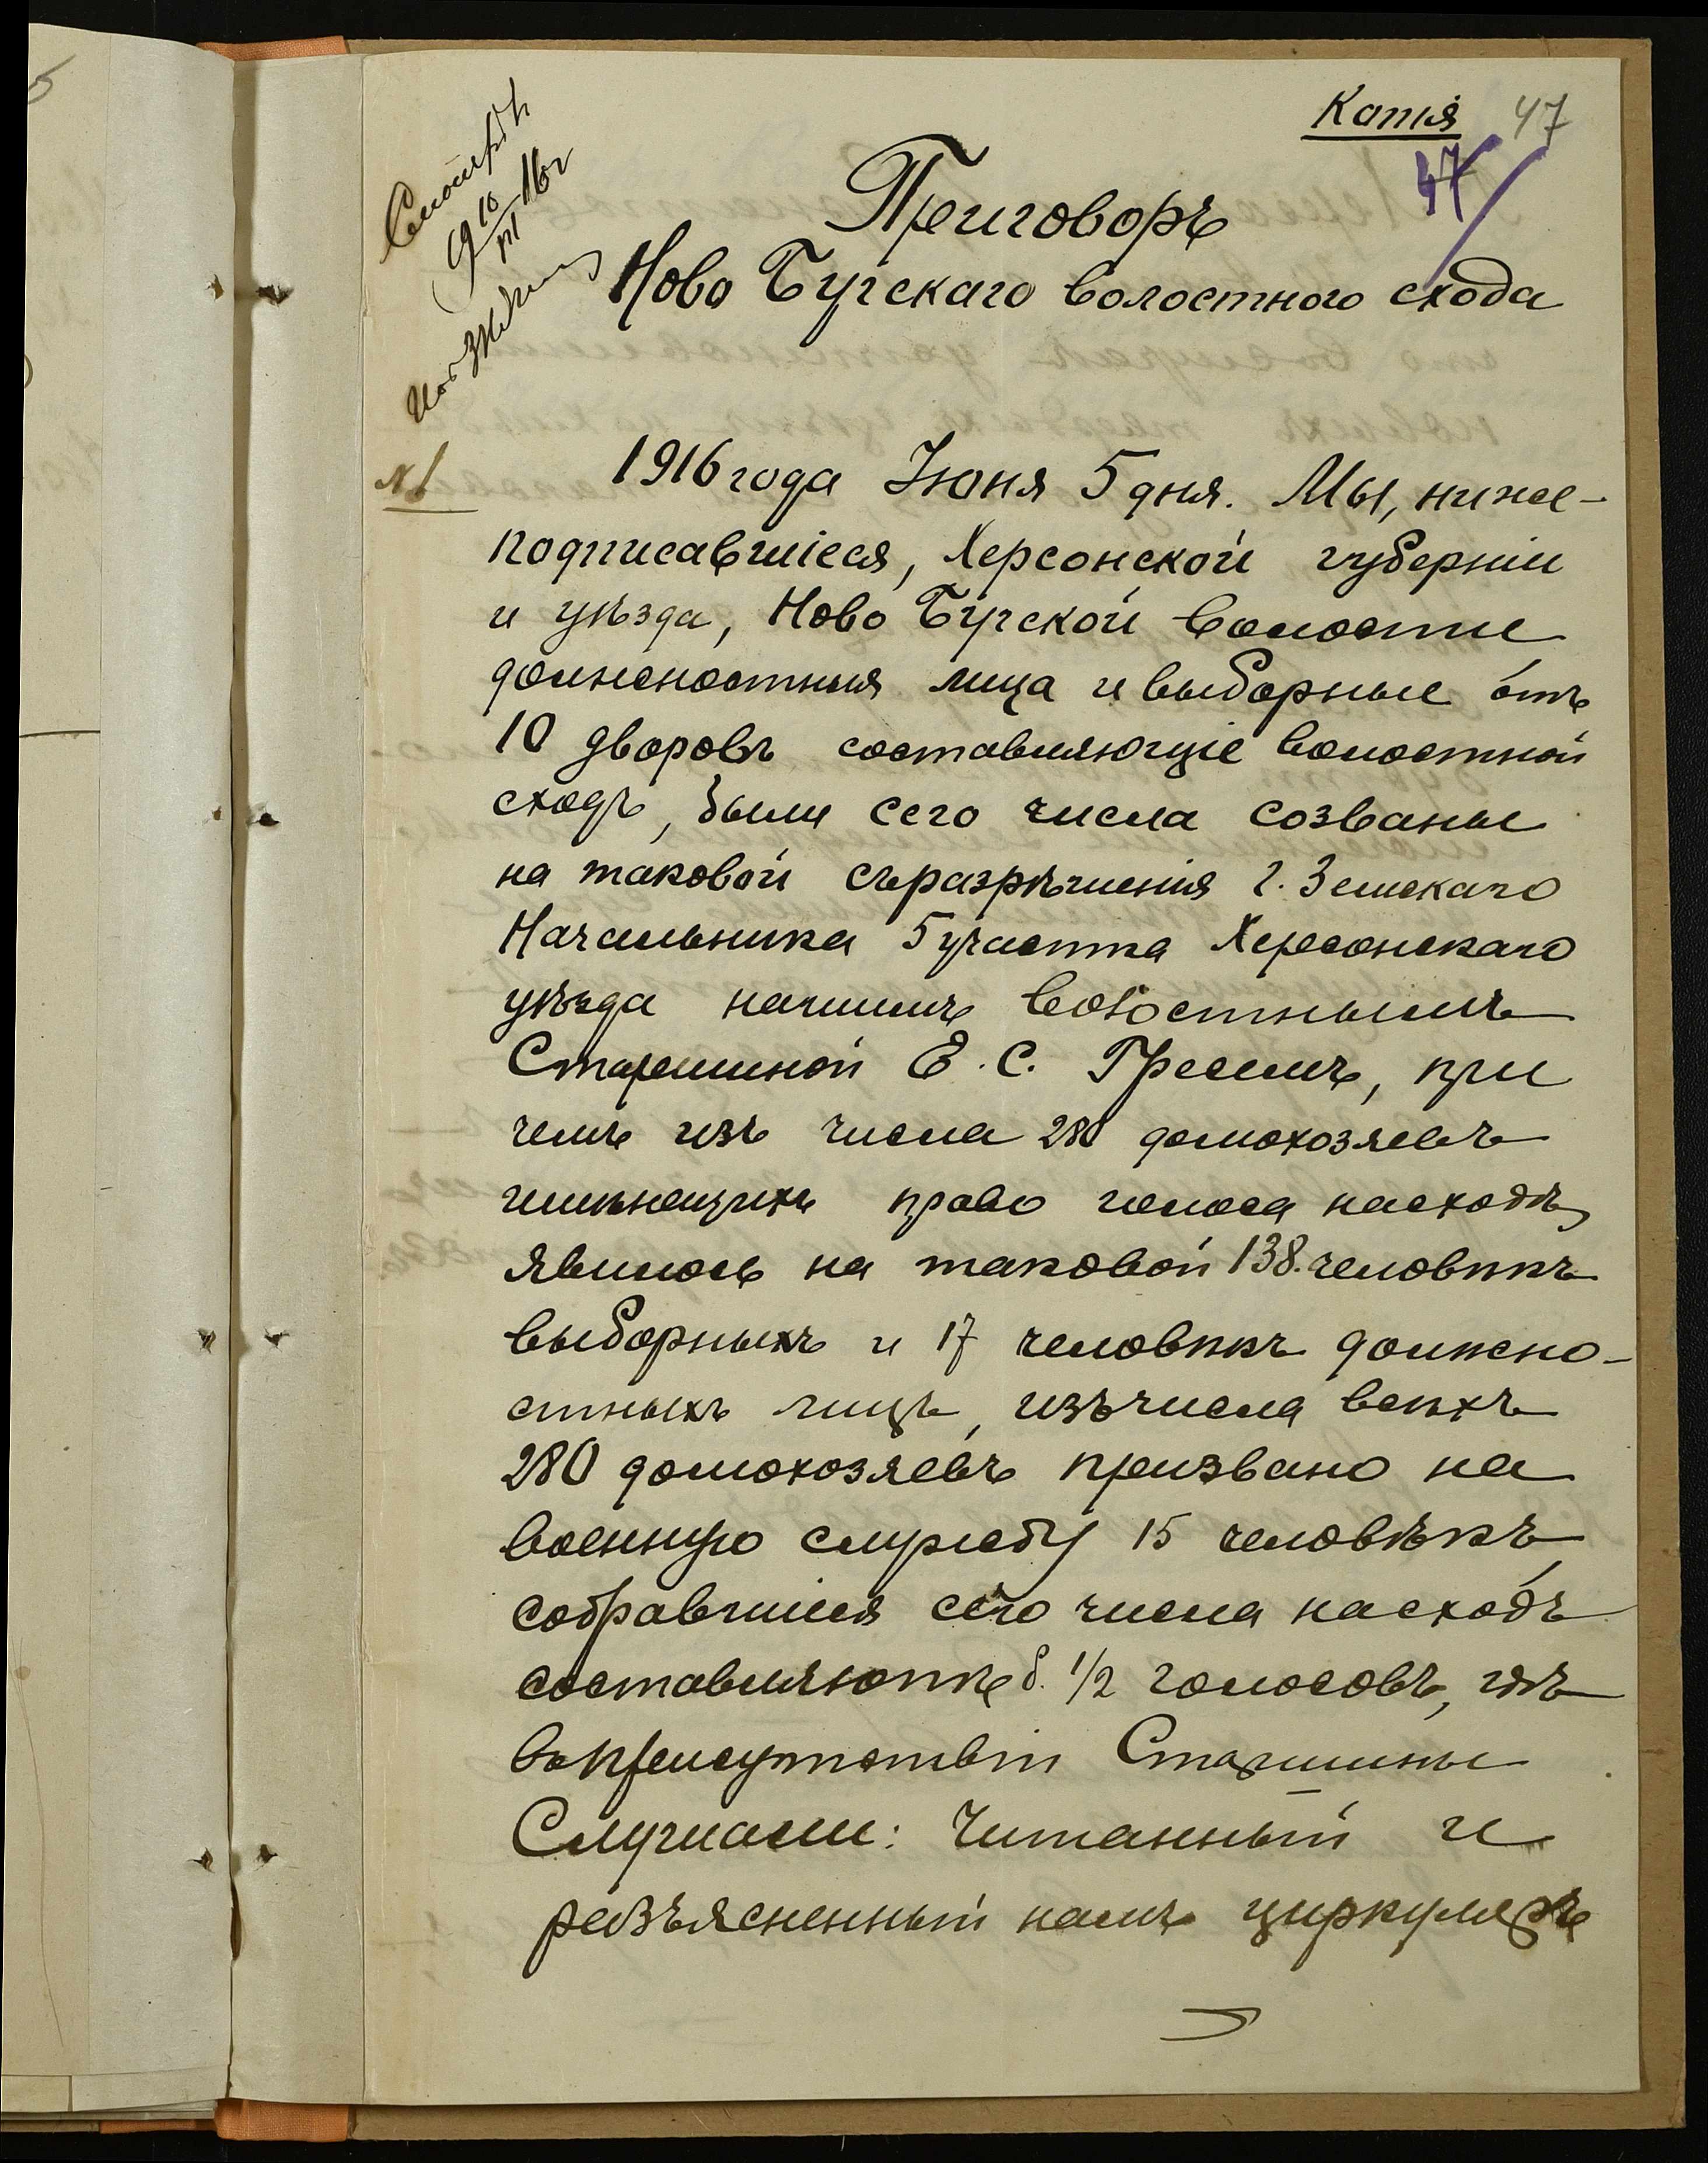 Копія 47
47
Приговоръ
Ново Бугскаго волостного схода
№1
1916 года Іюня 5 дня. Мы, ниже-
подписавшіеся, Херсонской губерніи
и уѣзда, Ново Бугской волости
должностныя лица и выборные отъ
10 дворовъ составляющіе волостной
сходъ, были сего числа созваны
на таковой съ разрѣшенія г. Земскаго
Начальника 5 участка Херсонскаго
уѣзда нашимъ волостнымъ
Старшиной Е. С. , при
чемъ изъ числа 280 домохозяевъ
имѣющихъ право голоса на сходѣ,
явилось на таковой 138. человѣкъ
выборныхъ и 17 человѣкъ должно-
стныхъ лицъ, изъ числа всѣхъ
280 домохозяевъ призвано на
военную службу 15 человѣкъ,
собравшіеся сего числа на сходъ
составляютъ б. 1/2 голосовъ, гдѣ
въ присутствіи Старшины
Слушали: Читанный и
разъясненный намъ циркуляръ